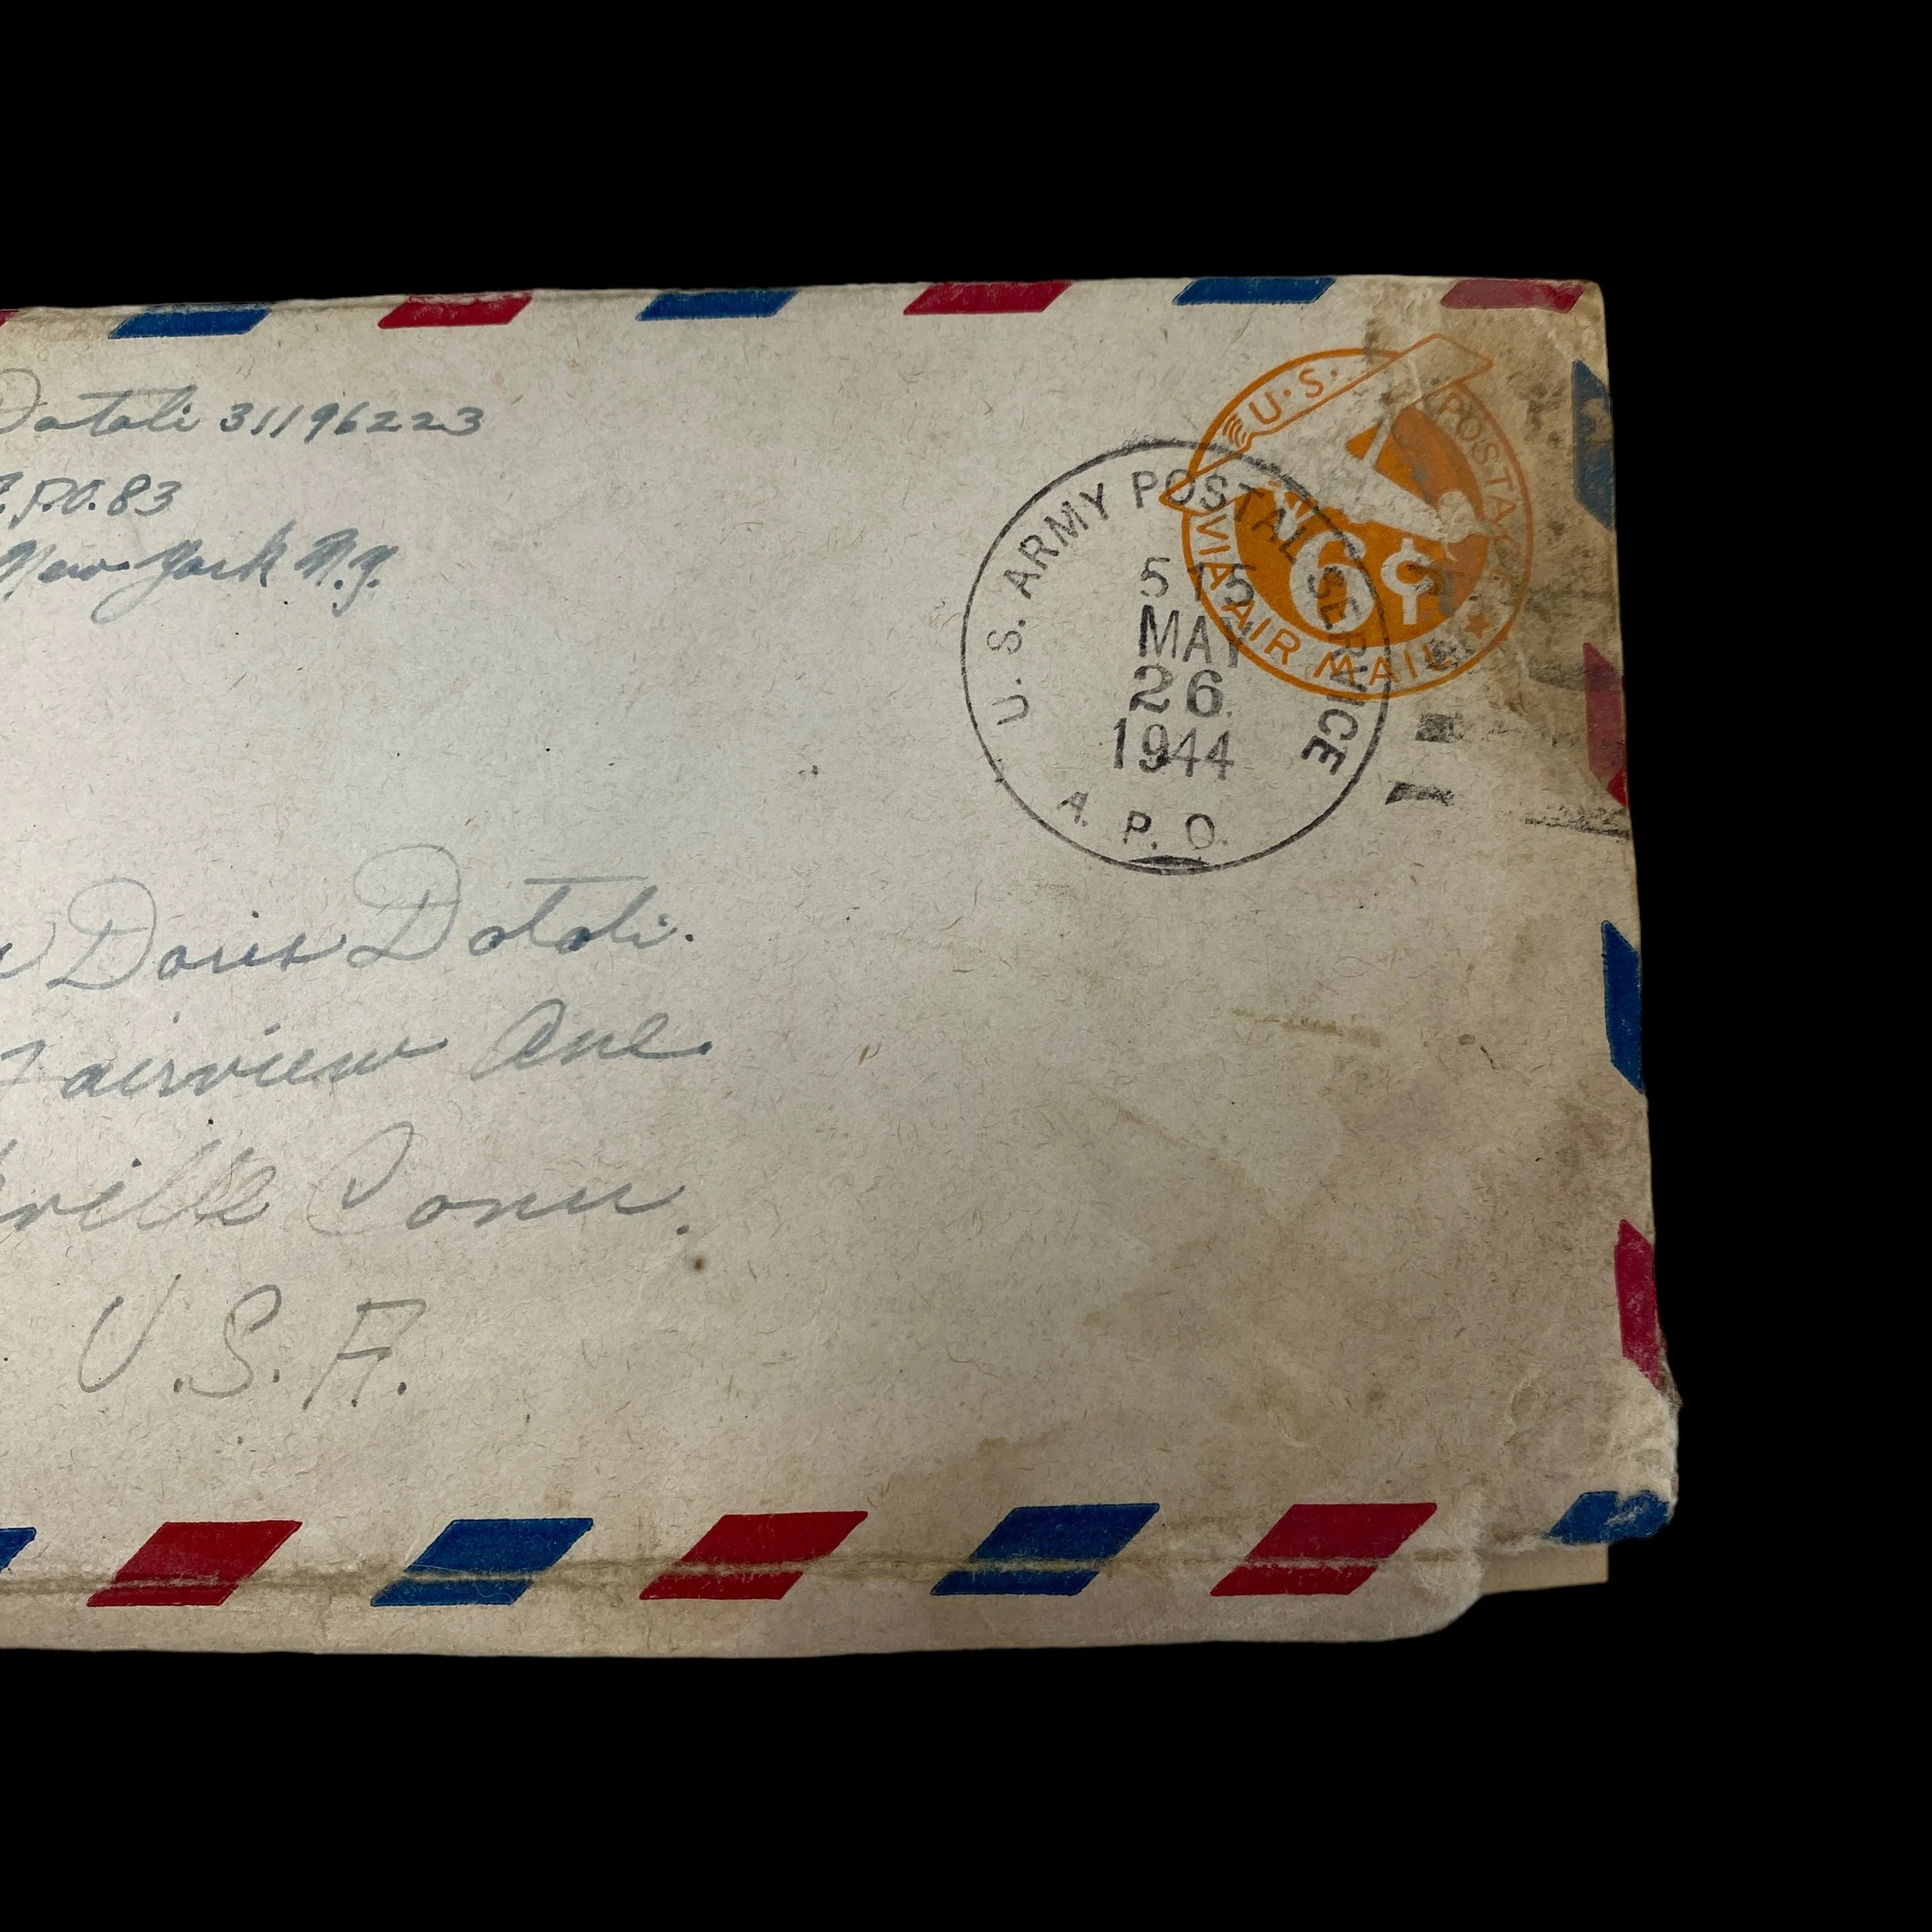 Datoli 31196223
A.P.O. 83
New York N.Y.
U.S. POSTAGE
6¢
VIA AIR MAIL
U.S. ARMY POSTAL SERVICE
5 15
MAY
26
1944
A. P. O.
Doris Datoli.
Fairview Ave.
ville Conn.
U.S.A.